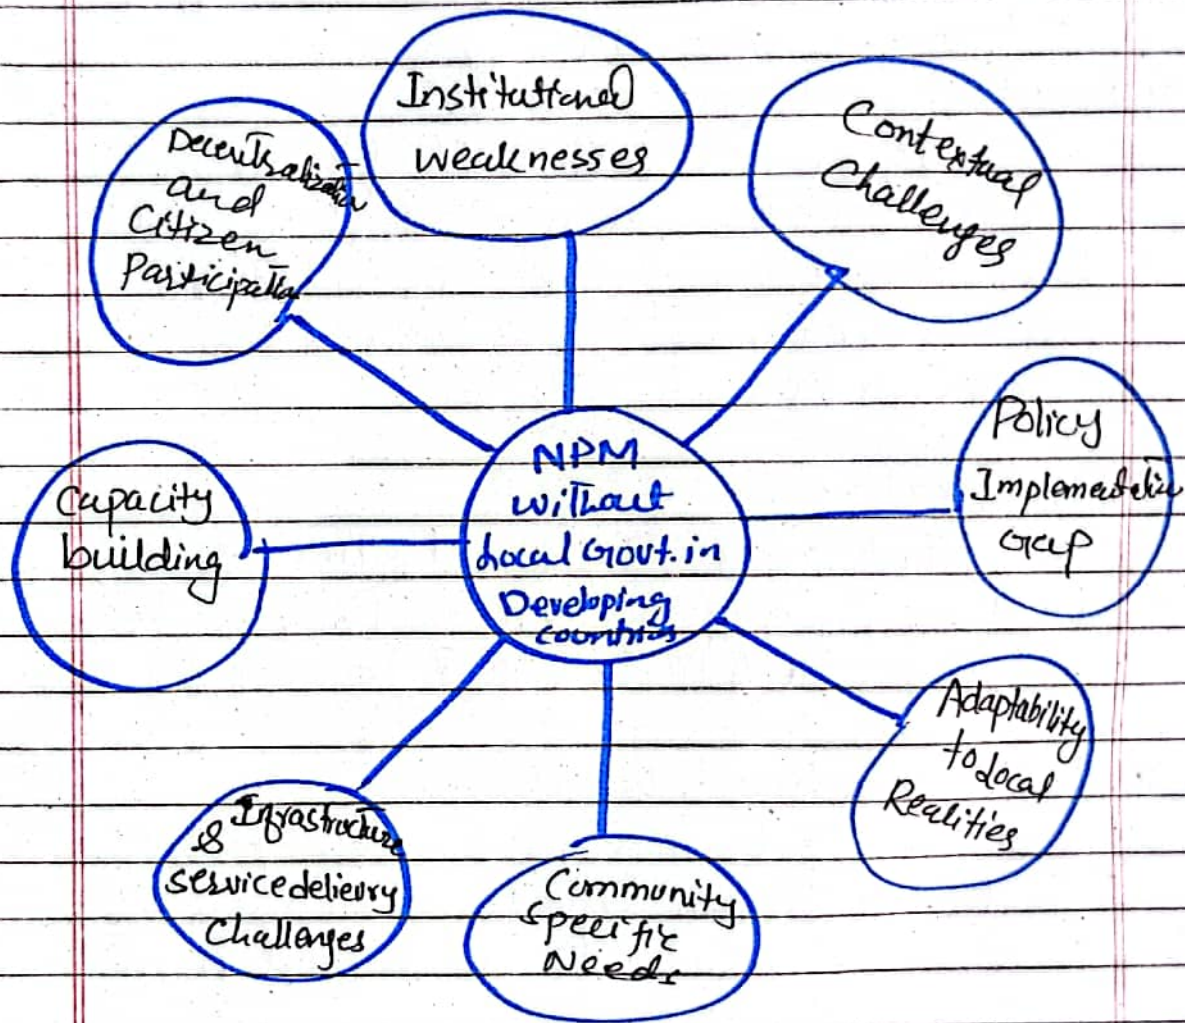 Institutional
weaknesses
Contextual
Challenges
Decentralization
and
Citizen
Participation
Policy
Implementation
Gap
NPM
without
Local Govt. in
Developing
countries
Capacity
building
Adaptability
to Local
Realities
Infrastructure
&
service delievry
Challenges
Community
Specific
Needs